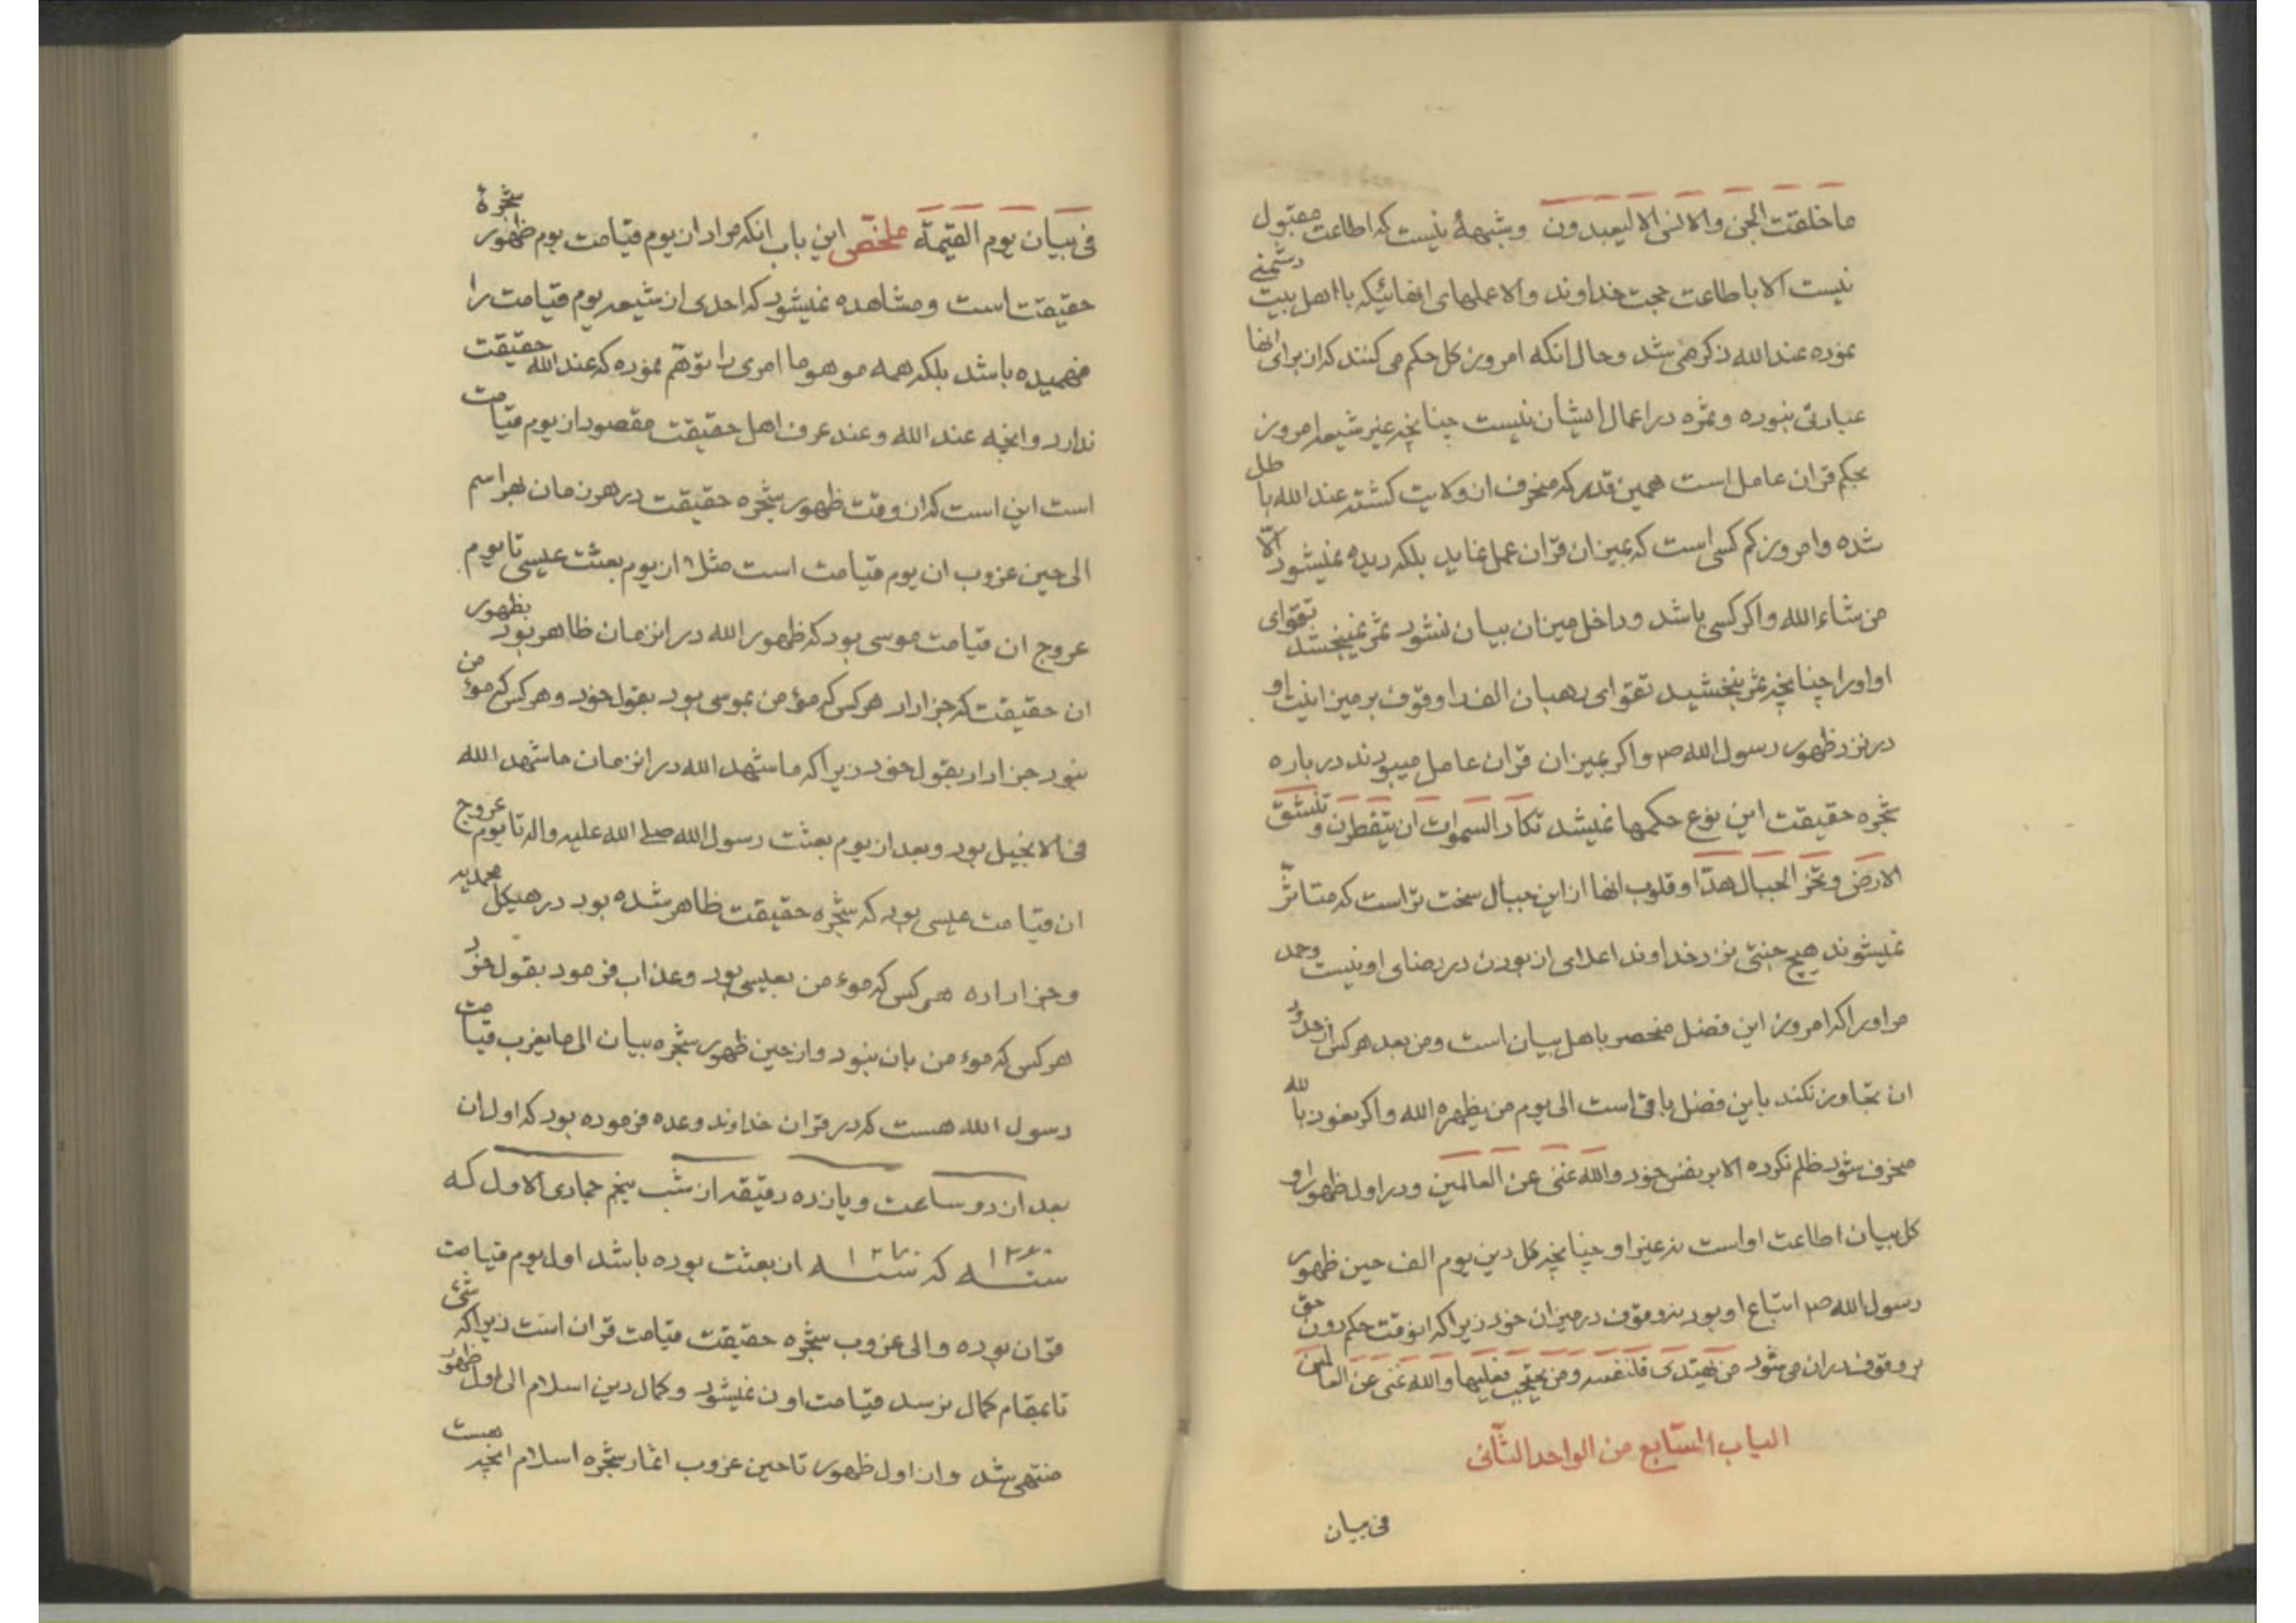 ما خلقت الجن والانس الا ليعبدون وشبههٔ نیست که اطاعت مقبول
نیست الا باطاعت حجت خداوند والا عملهای انهائیکه با اهل بیت دشمنی
نموده عند الله ذکر می شد وحال انکه امروز کل حکم می کنند که از برای انها
عبادتی نبوده وثمره در اعمال ایشان نیست چنانچه غیر شیعه امروز
بحکم قران عامل است همین قدر که منحرف از ولایت کشته عند الله باطل
شده وامروز کم کسی است که بمیزان قران عمل نماید بلکه دیده نمیشود الّا
من شاء الله واکر کسی باشد وداخل میزان بیان نشود ثمر نمیبخشد تقوای
او اورا چنانچه ثمر نبخشید تقوای رهبان الف را وقوف بر میزانیت او
در نزد ظهور رسول الله ص واکر بمیزان قران عامل میبودند در باره
شجره حقیقت این نوع حکمها نمیشد تکاد السموات ان یتفطرن و تنشق
الارض وتخر الجبال هدّا وقلوب انها از این جبال سخت تر است که متاثّر
نمیشوند هیچ جنتی نزد خداوند اعلای از بودن در رضای او نیست وحمد
مر اورا که امروز این فضل منحصر باهل بیان است ومن بعد هر کس از حدود
ان تجاوز نکند باین فضل باقی است الی یوم من یظهره الله واکر نعوذ بالله
منحرف شود ظلم نکرده الا بر نفس خود والله غنی عن العالمین ودر اول ظهور او
کل بیان اطاعت او است نه غیر او چنانچه کل دین یوم الف حین ظهور
رسول الله ص اتباع او بود نه وقوف در میزان خود زیرا که انوقت حکم دون حق
بر وقوف در ان می شود من یهتدی فلنفسه ومن یحتجب فعلیها والله غنی عن العالمین
الباب السّابع من الواحد الثّانی
فی بیان
فی بیان یوم القیٰمة ملخّص این باب انکه مراد از یوم قیامت یوم ظهور شجرهٔ
حقیقت است ومشاهده نمیشود که احدی از شیعه یوم قیامت را
فهمیده باشد بلکه همه موهوما امری را توهّم نموده که عند الله حقیقت
ندارد وانچه عند الله وعند عرف اهل حقیقت مقصود از یوم قیامت
است این است که از وقت ظهور شجره حقیقت در هر زمان بهر اسم
الی حین غروب ان یوم قیامت است مثلا از یوم بعثت عیسی تا یوم
عروج ان قیامت موسی بود که ظهور الله در انزمان ظاهر بود بظهور
ان حقیقت که جزا داد هر کس که مؤمن بموسی بود بقول خود وهر کس که مؤمن
نبود جزا داد بقول خود زیرا که ما شهد الله در انزمان ما شهد الله
فی الانجیل بود وبعد از یوم بعثت رسول الله صلی الله علیه واله تا یوم عروج
ان قیامت عیسی بود که شجره حقیقت ظاهر شده بود در هیکل محمدیه
وجزا داده هر کس که موء من بعیسی بود وعذاب فرمود بقول خود
هر کس که موء من بان نبود واز حین ظهور شجره بیان الی ما یغرب قیامت
رسول الله هست که در قران خداوند وعده فرموده بود که اول ان
بعد از دو ساعت ویازده دقیقه از شب پنجم جمادی الاول که
سنه ١٢٦٠ که سنه ١٢٧٠ ان بعثت بوده باشد اول یوم قیامت
قران بوده والی غروب شجره حقیقت قیامت قران است زیرا که شیء
تا بمقام کمال نرسد قیامت او ن نمیشود وکمال دین اسلام الی اول ظهور
منتهی شد واز اول ظهور تا حین غروب اثمار شجره اسلام انچه هست